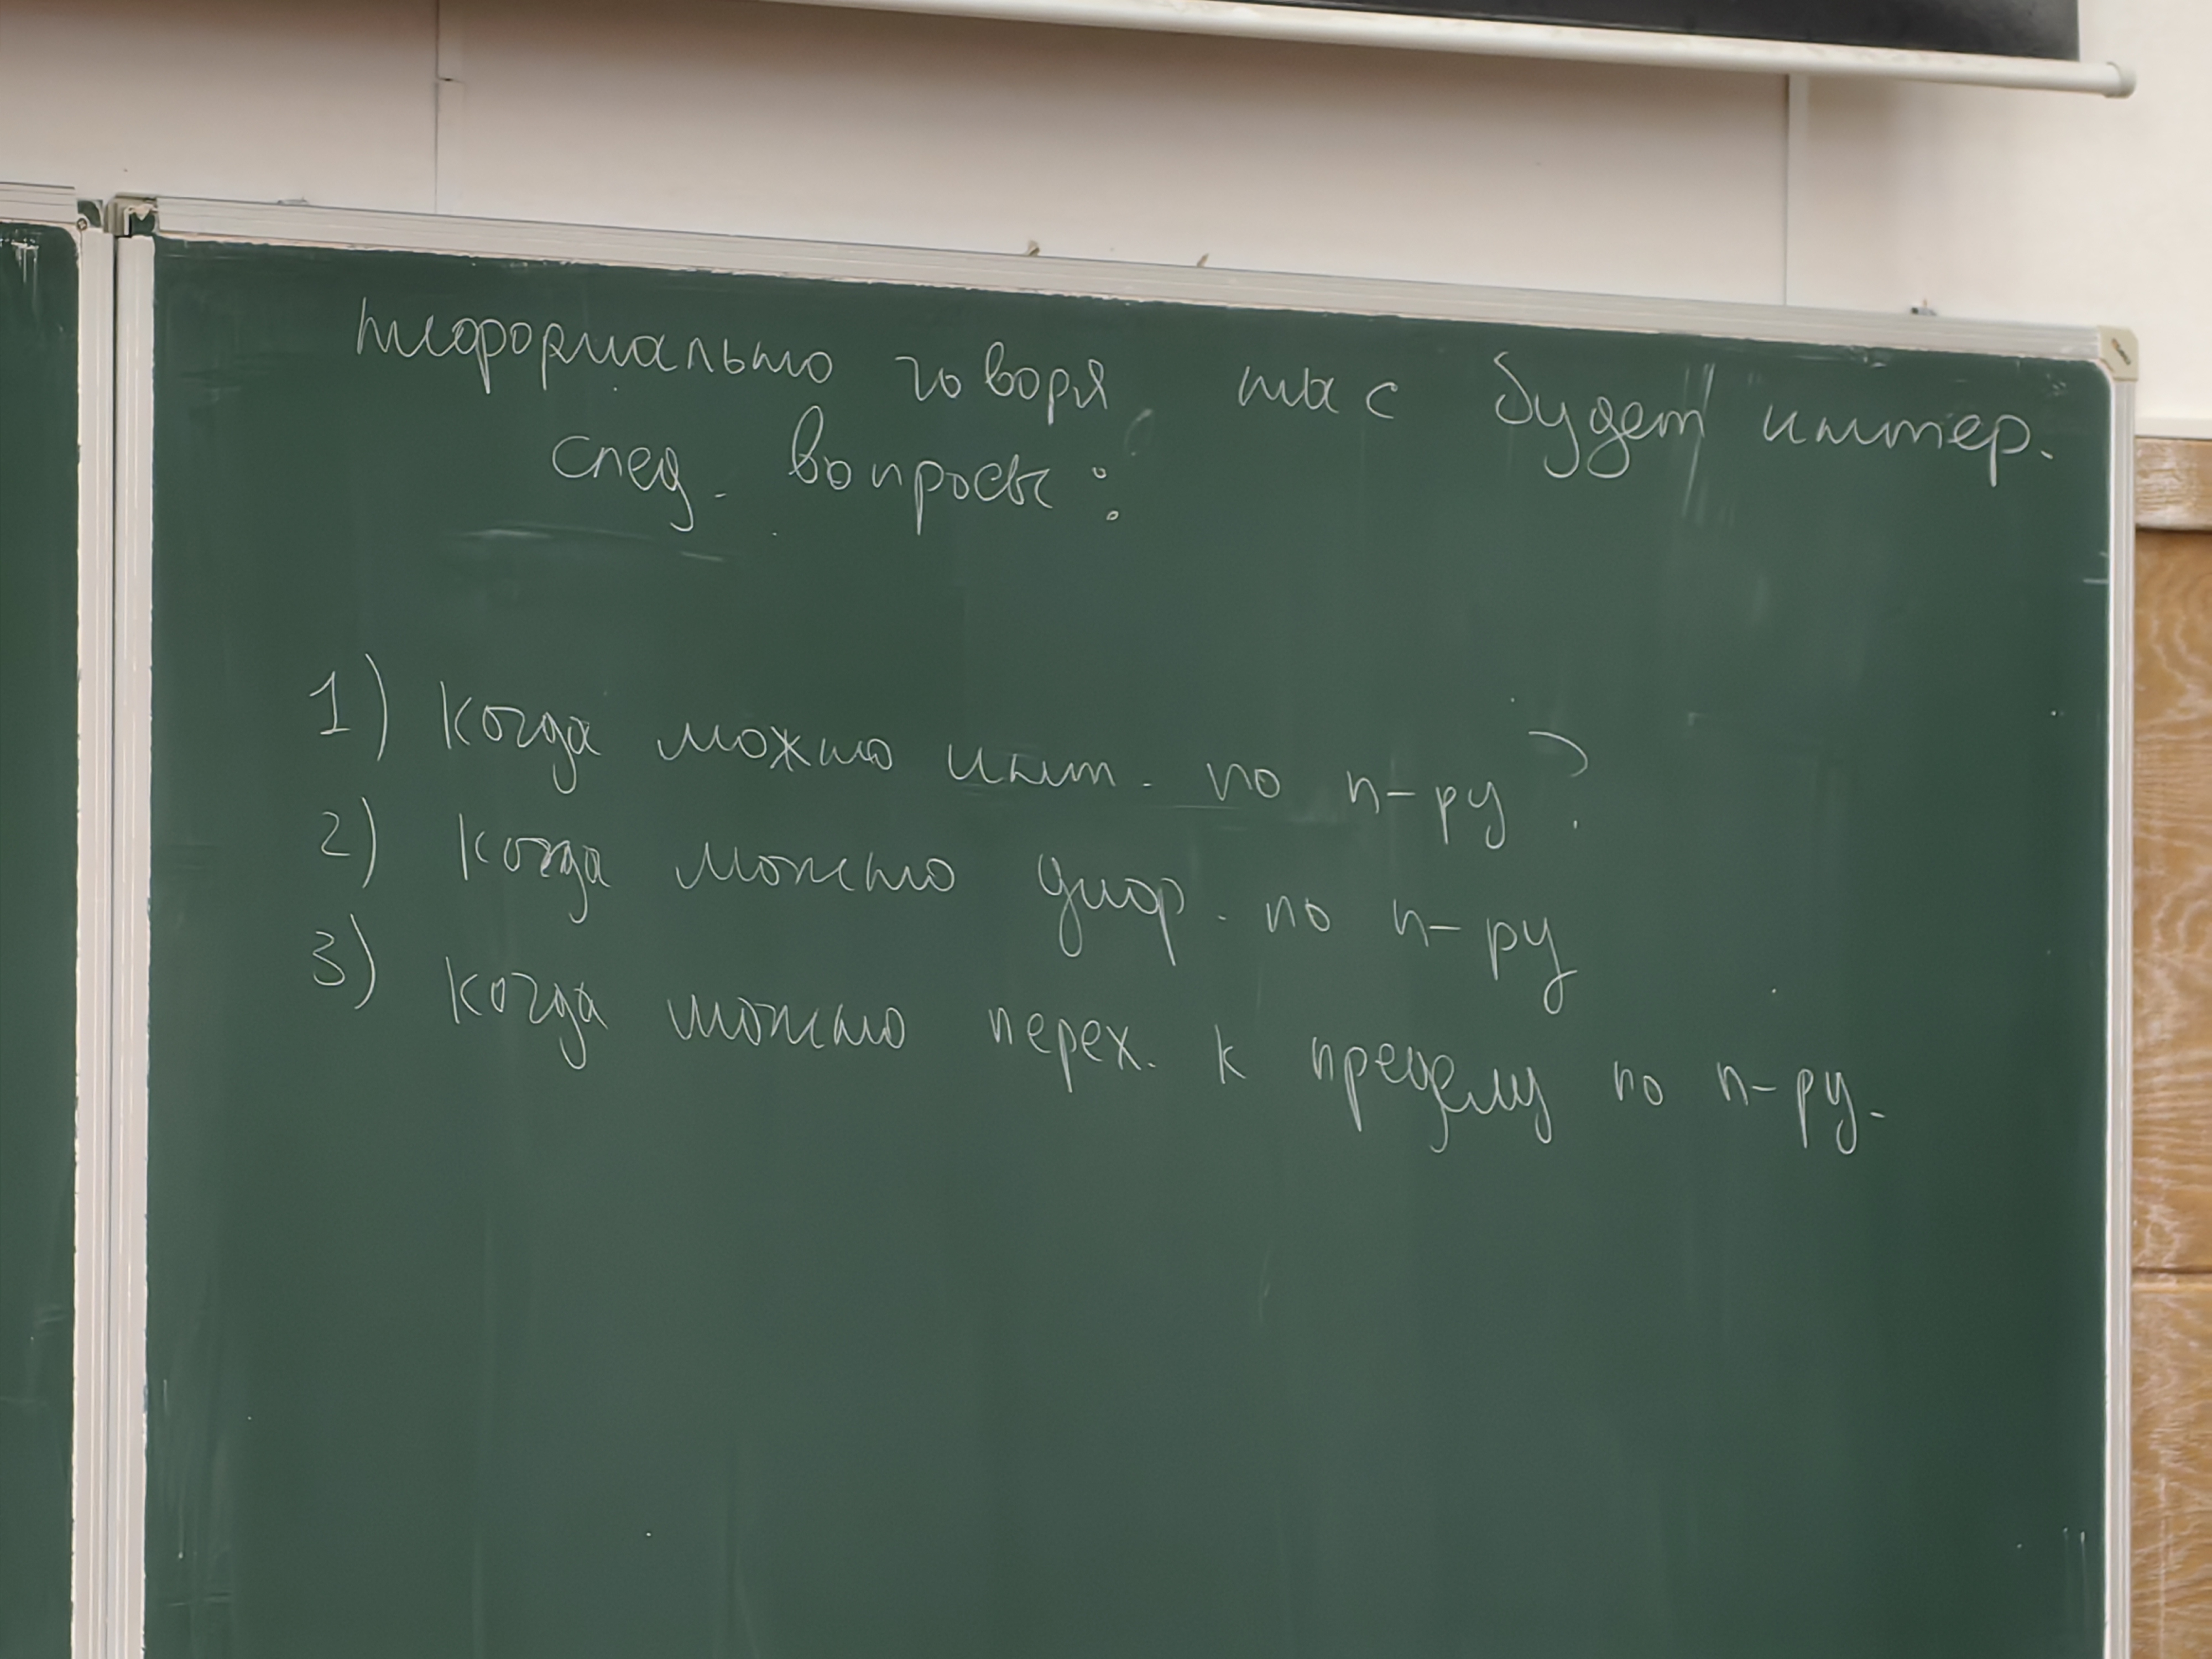 неформально говоря, нас будет интер.
след. вопросы:
1) когда можно инт. по п-ру?
2) когда можно диф. по п-ру
3) когда можно перех. к пределу по п-ру.